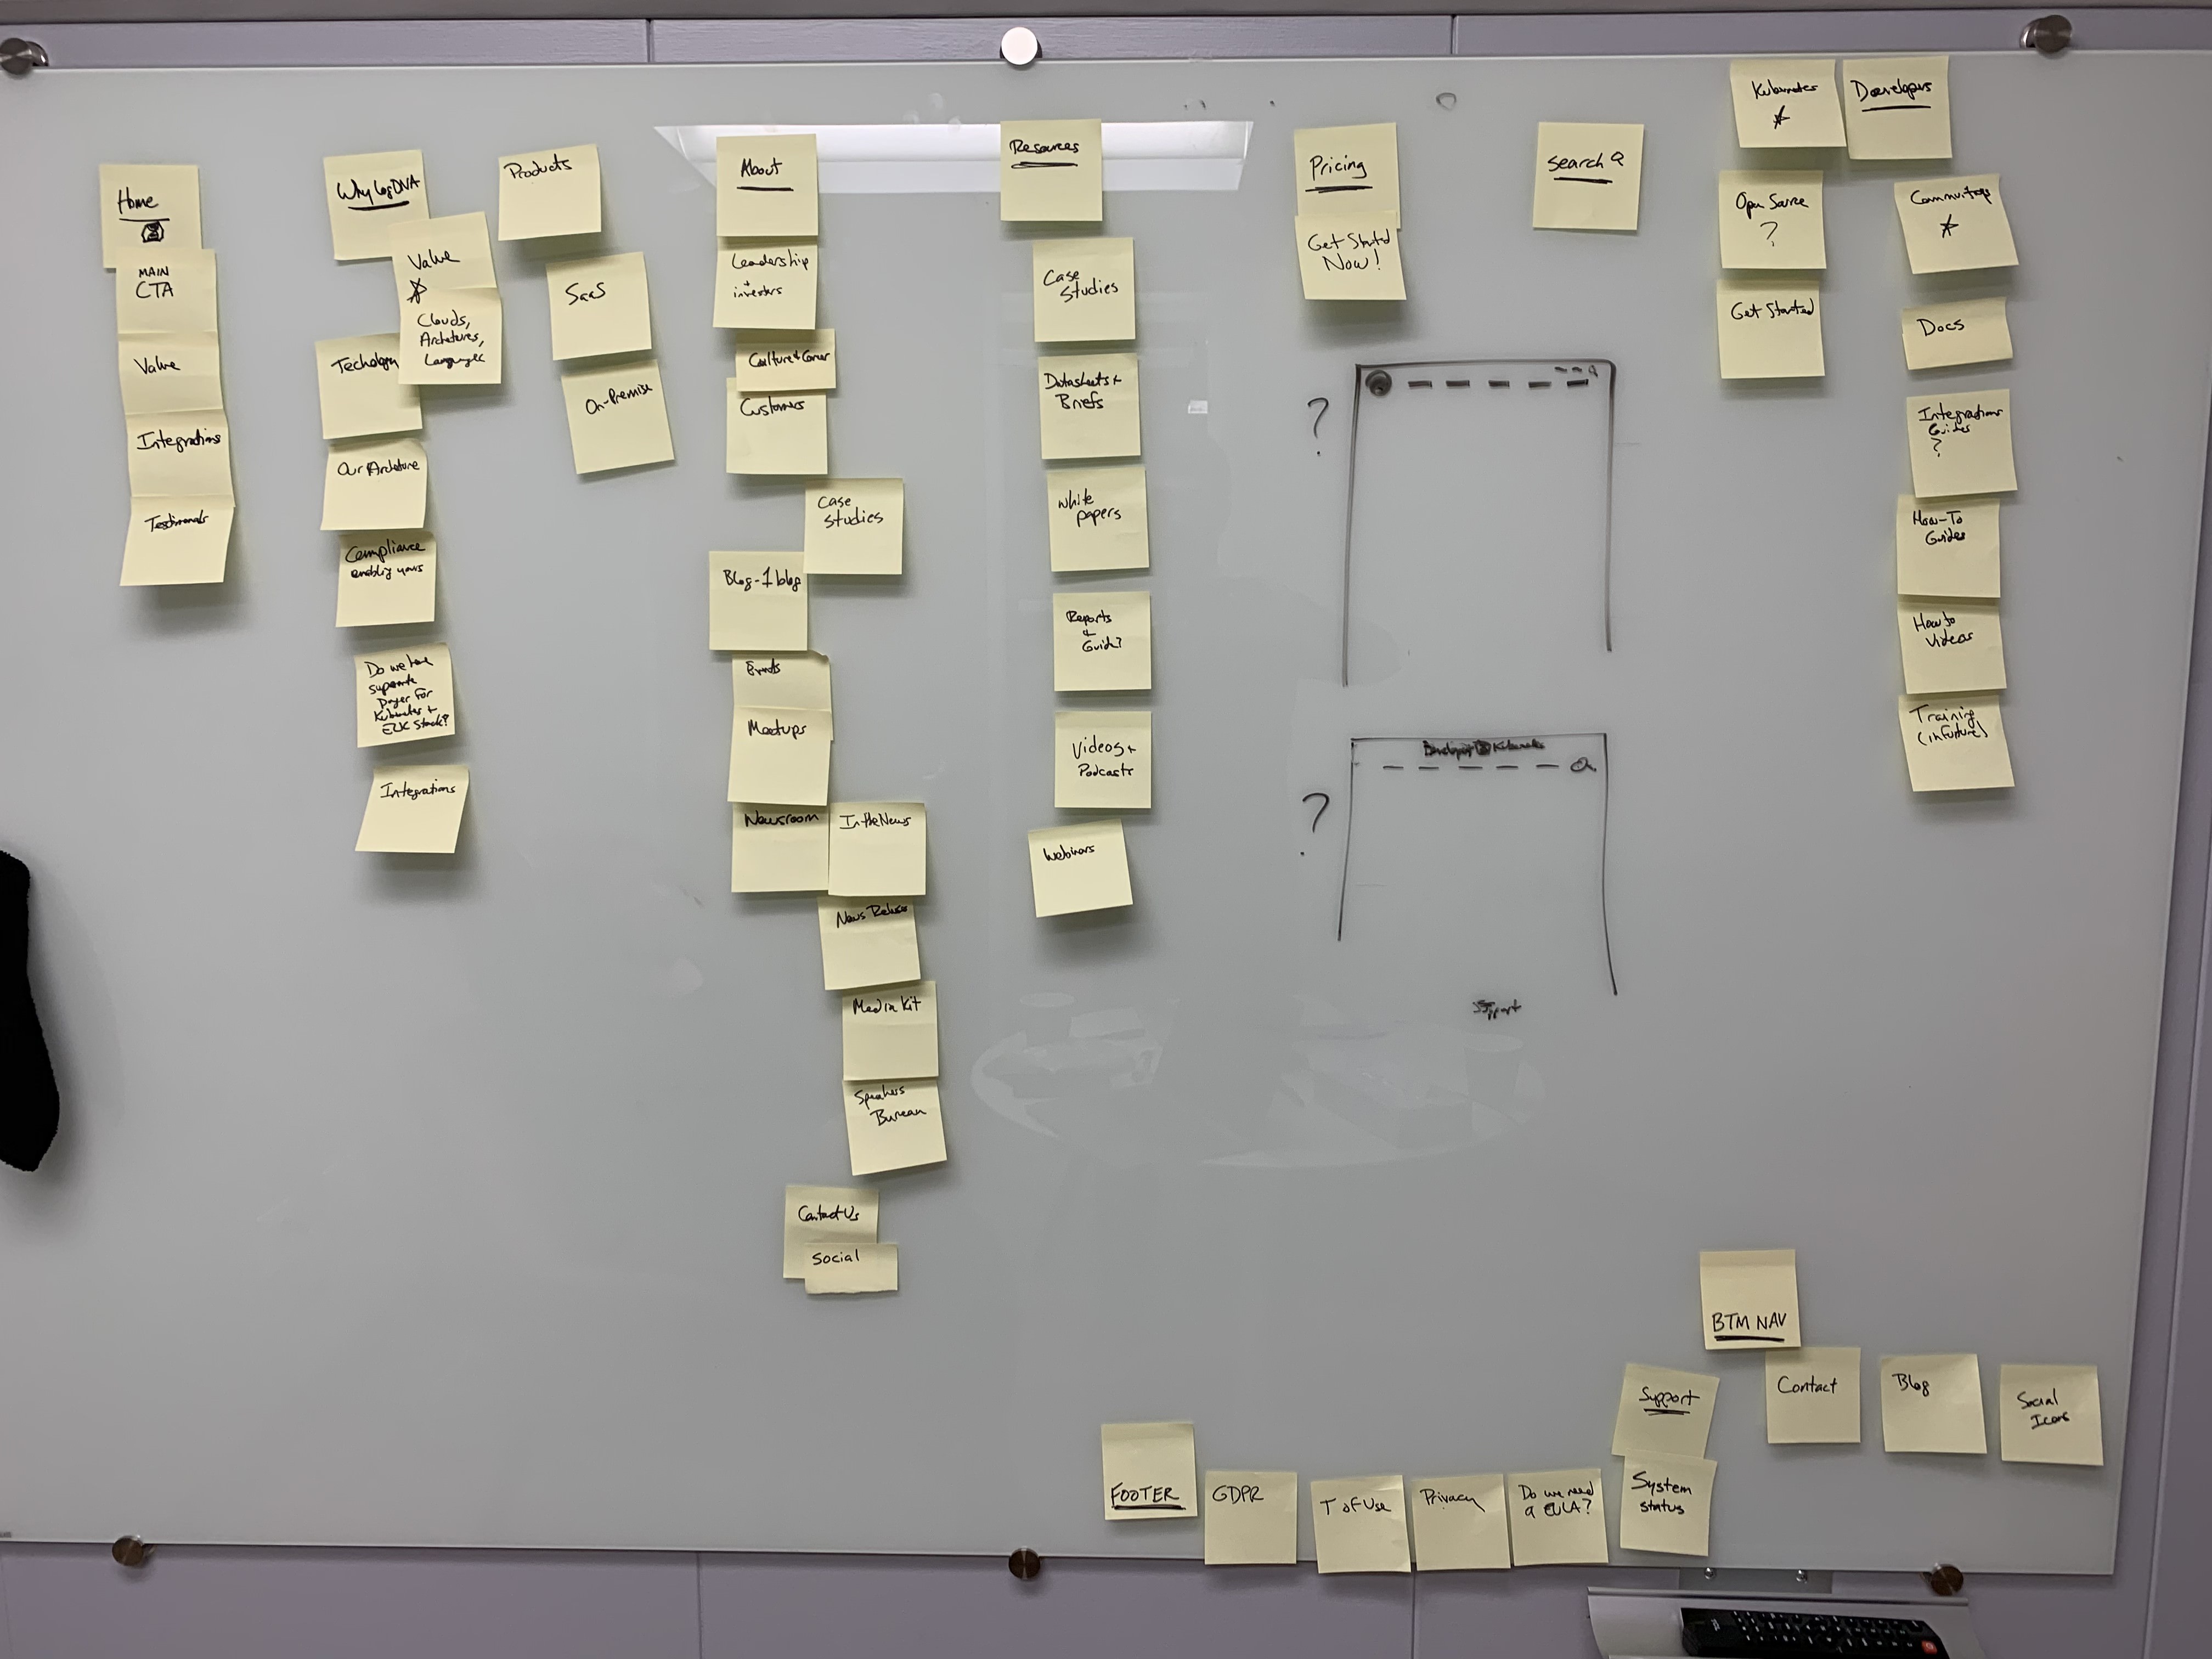 Home
MAIN
CTA
Value
Integrations
Testimonals
Why LogDNA
Value
Clouds,
Archetures,
Languages
Techology
Our Archeture
Compliance
enabling yours
Do we have
separate
for
Kubernetes +
ELK Stack?
Integrations
Products
SaaS
On-Premise
About
Leadership
+
investors
Culture & Career
Customers
Case
Studies
Blog - 1 blog
Events
Meetups
Newsroom
In the News
News Release
Media Kit
Speakers
Bureau
Contact Us
Social
Resources
Case
Studies
Datasheets +
Briefs
White
papers
Reports
&
Guide?
Videos +
Podcasts
Webinars
Pricing
Get Started
Now!
Search
?
?
Support
Kubernetes
Open Source
?
Get Started
Developers
Docs
Integrations
Guides
?
How-To
Guides
How to
Videos
Training
(in future)
BTM NAV
Support
System
status
Contact
Blog
Social
Icons
FOOTER
GDPR
T of Use
Privacy
Do we need
a EULA?